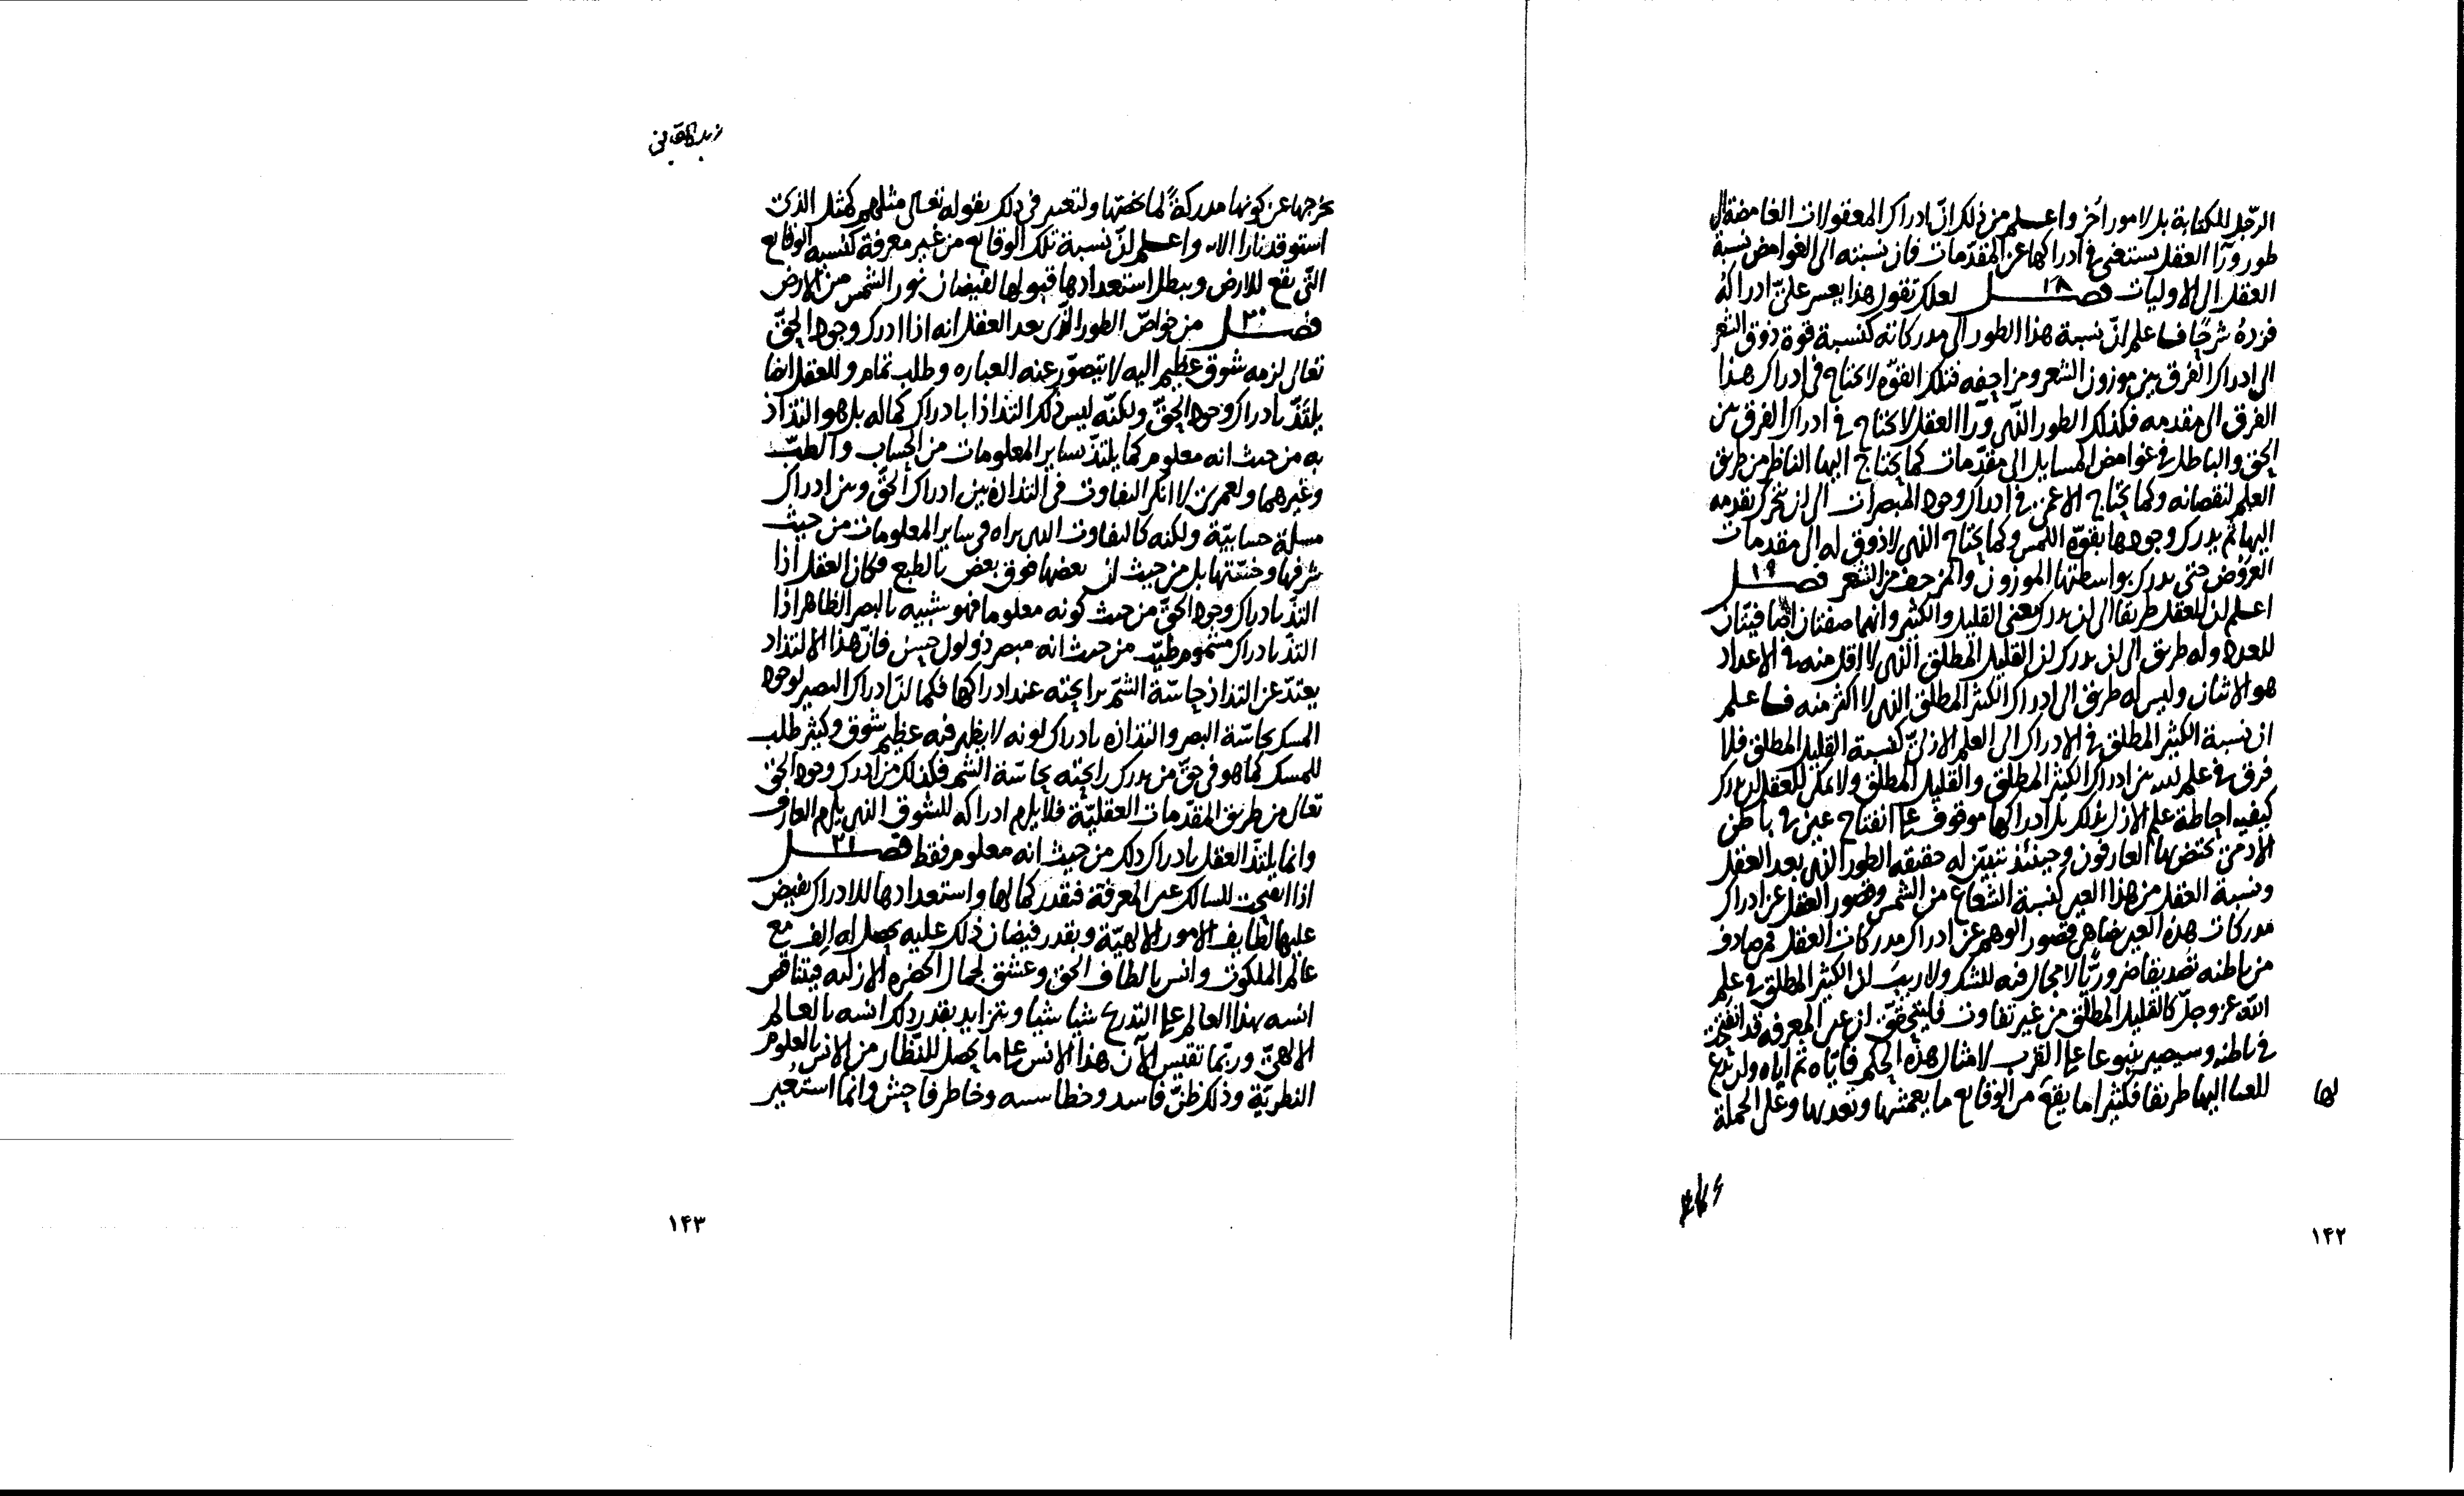 الرجل للكتابة بل لامور أخر واعلم من ذلك انّ ادراك المعقولات الغامضة ال
طور ورآ العقل يستغنى فى ادراكها عن المقدّمات فان نسبته الى الغوامض نسبة
العقل الى الاوليات فصل ١٨ لعلك تقول هذا يعسر علىّ ادراكه
فزده شرحًا فاعلم انّ نسبة هذا الطور الى مدركاته كنسبة قوة ذوق الشعر
الى ادراك الفرق بين موزون الشعر ومزاحفه فتلك القوّه لا تحتاج فى ادراك هذا
الفرق الى مقدمه فكذلك الطور الذى ورآ العقل لا يحتاج فى ادراك الفرق بين
الحق والباطل فى غوامض المسايل الى مقدّمات كما يحتاج اليها الناظر من طريق
العلم لنقصانه وكما يحتاج الاعمى فى ادراك وجود المبصرات الى ان يتحرك بقدمه
اليها ثم يدرك وجودها بقوّة اللمس وكما يحتاج الذى لا ذوق له الى مقدمات
العروض حتى يدرك بواسطتها الموزون والمزحف من الشعر فصل ١٩
اعلم ان للعقل طريقا الى ان يدرك معنى القليل والكثير وانهما صفتان اضافيّتان
للعدد وله طريق الى ان يدرك ان القليل المطلق الذى لا اقل منه فى الاعداد
هو الاثنان وليس له طريق الى ادراك الكثير المطلق الذى لا اكثر منه فاعلم
ان نسبة الكثير المطلق فى الادراك الى العلم الازلىّ كنسبة القليل المطلق فلا
فرق فى علم الله بين ادراك الكثير المطلق والقليل المطلق ولا يمكن للعقل ان يدرك
كيفيه احاطة علم الازل بذلك بل ادراكها موقوف على انفتاح عين فى باطن
الآدمىّ يختص بها العارفون وحينئذ تتبيّن له حقيقه الطور الذى بعد العقل
ونسبة العقل من هذا العين كنسبة الشعاع من الشمس وقصور العقل عن ادراك
مدركات هذه العين يضاهى قصور الوهم عن ادراك مدركات العقل فمن صادف
من باطنه تصديقا ضروريّا لا مجال فيه للشك ولا ريب ان الكثير المطلق فى علم
الله عز وجلّ كالقليل المطلق من غير تفاوت فليتحقّق ان عين المعرفه قد انفتحت
فى باطنه وسيصير ينبوعا على القرب لامثال هذه الحكم فايّاه ثم اياه وان يدع
للعمى اليها طريقا فكثيرا ما يقع من الوقايع ما يعمشها وتعد بها وعلى الجملة
لها
١٤٢
زبدة الحقايق
يخرجها عن كونها مدركةً لما يخصّها ولتعتبر فى ذلك بقوله تعالى مثلهم كمثل الذى
استوقد نارا الايه واعلم انّ نسبة تلك الوقايع من عين معرفة كنسبه الوقايع
التى تقع للارض ويبطل استعدادها قبولها لفيضان نور الشمس من الارض
فصل ٢٠ من خواصّ الطور الذى بعد العقل انه اذا ادرك وجود الحقّ
تعالى لزمه شوق عظيم اليه لا يتصوّر عنه العباره وطلب تمام وللعقل ايضا
يلتذّ بادراك وجود الحقّ ولكنّه ليس ذلك التذاذا بادراك كماله بل هو التذاذ
به من حيث انه معلوم كما يلتذّ بساير المعلومات من الحساب والطبّ
وغيرهما ولعمرى لا انكر التفاوت فى التذاذه بين ادراك الحقّ وبين ادراك
مسلة حسابيّة ولكنه كالتفاوت الذى يراه فى ساير المعلومات من حيث
شرفها وخسّتها بل من حيث ان بعضها فوق بعض بالطبع وكان العقل اذا
التذّ بادراك وجود الحقّ من حيث كونه معلوما فهو شبيه بالبصر الظاهر اذا
التذّ بادراك مشموم طيّب من حيث انه مبصر ذو لون حسن فانّ هذا الالتذاذ
يعتدّ عن التذاذ حاسّة الشمّ برايحته عند ادراكها فكما انّ ادراك البصير لوجود
المسك بحاسّة البصر والتذاذه بادراك لونه لا يظهر فيه عظيم شوق وكثير طلب
للمسك كما هو فى حقّ من يدرك رايحته بحاسّة الشم فكذلك من ادرك وجود الحق
تعالى من طريق المقدّمات العقليّة فلا يلزم ادراكه للشوق الذى يلزم العارف
وانما يلتذّ العقل بادراك ذلك من حيث انه معلوم فقط فصل ٢١
اذا انفتحت للسالك عين المعرفة فبقدر كمالها واستعدادها للادراك يفيض
عليها لطايف الامور الالهيّة وبقدر فيضان ذلك عليه يحصل له الف مع
عالم الملكوت وانس بالطاف الحقّ وعشق لجمال الحضره الازليه فيتناقص
انسه بهذا العالم على التدريج شيا شيا ويتزايد بقدر ذلك انسه بالعالم
الالهىّ وربّما تقيس الآن هذا الانس على ما يحصل للنّظار من الانس بالعلوم
النظريّة وذلك ظنّ فاسد وخطا بيّن وخاطر فاحش وانما استعير
١٤٣